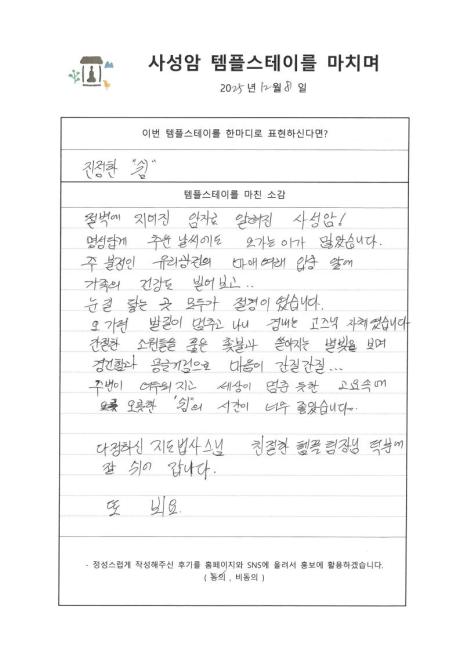 사성암 템플스테이를 마치며
2025년 12월 8일
이번 템플스테이를 한마디로 표현하신다면?
진정한 "쉼"
템플스테이를 마친 소감
절벽에 지어진 암자로 알려진 사성암!
명성답게 추운 날씨에도 오가는이가 많았습니다.
주 불전인 유리광전의 마애여래 입상 앞에
가족의 건강도 빌어보고..
눈길 닿는 곳 모두가 절경이었습니다.
오가던 발길이 멈추고 나니 경내는 고즈넉 자체였습니다
간절한 소원들을 품은 촛불과 쏟아지는 별빛을 보며
경건함과 몽글거림으로 마음이 간질간질...
주변이 어두워지고 세상이 멈춘 듯한 고요속에
오롯한 "쉼"의 시간이 너무 좋았습니다.
다정하신 지도법사스님 친절한 템플팀장님 덕분에
잘 쉬어 갑니다.
또 뵈요
- 정성스럽게 작성해주신 후기를 홈페이지와 SNS에 올려서 홍보에 활용하겠습니다.
( 동의 , 비동의 )